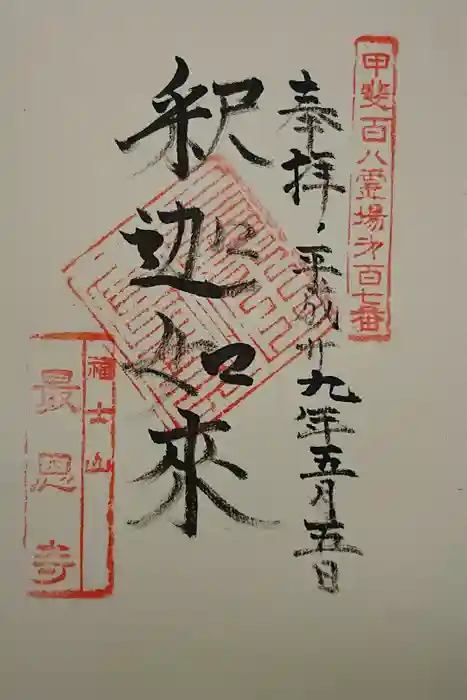 甲斐百八霊場㐧百七番
奉拝、平成廿九年五月五日
釈迦如來
福士山
最恩寺